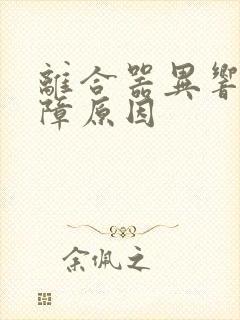 離合器異響
障原因
余佩之